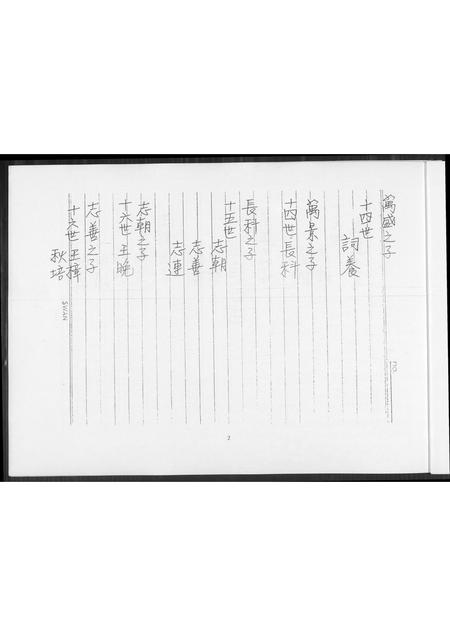 萬盛之子
十四世
詞養
萬景之子
十四世長科
長科之子
十五世
志朝
志善
志連
志朝之子
十六世玉晚
志善之子
十六世玉梓
秋培
NO.
SWAN
2